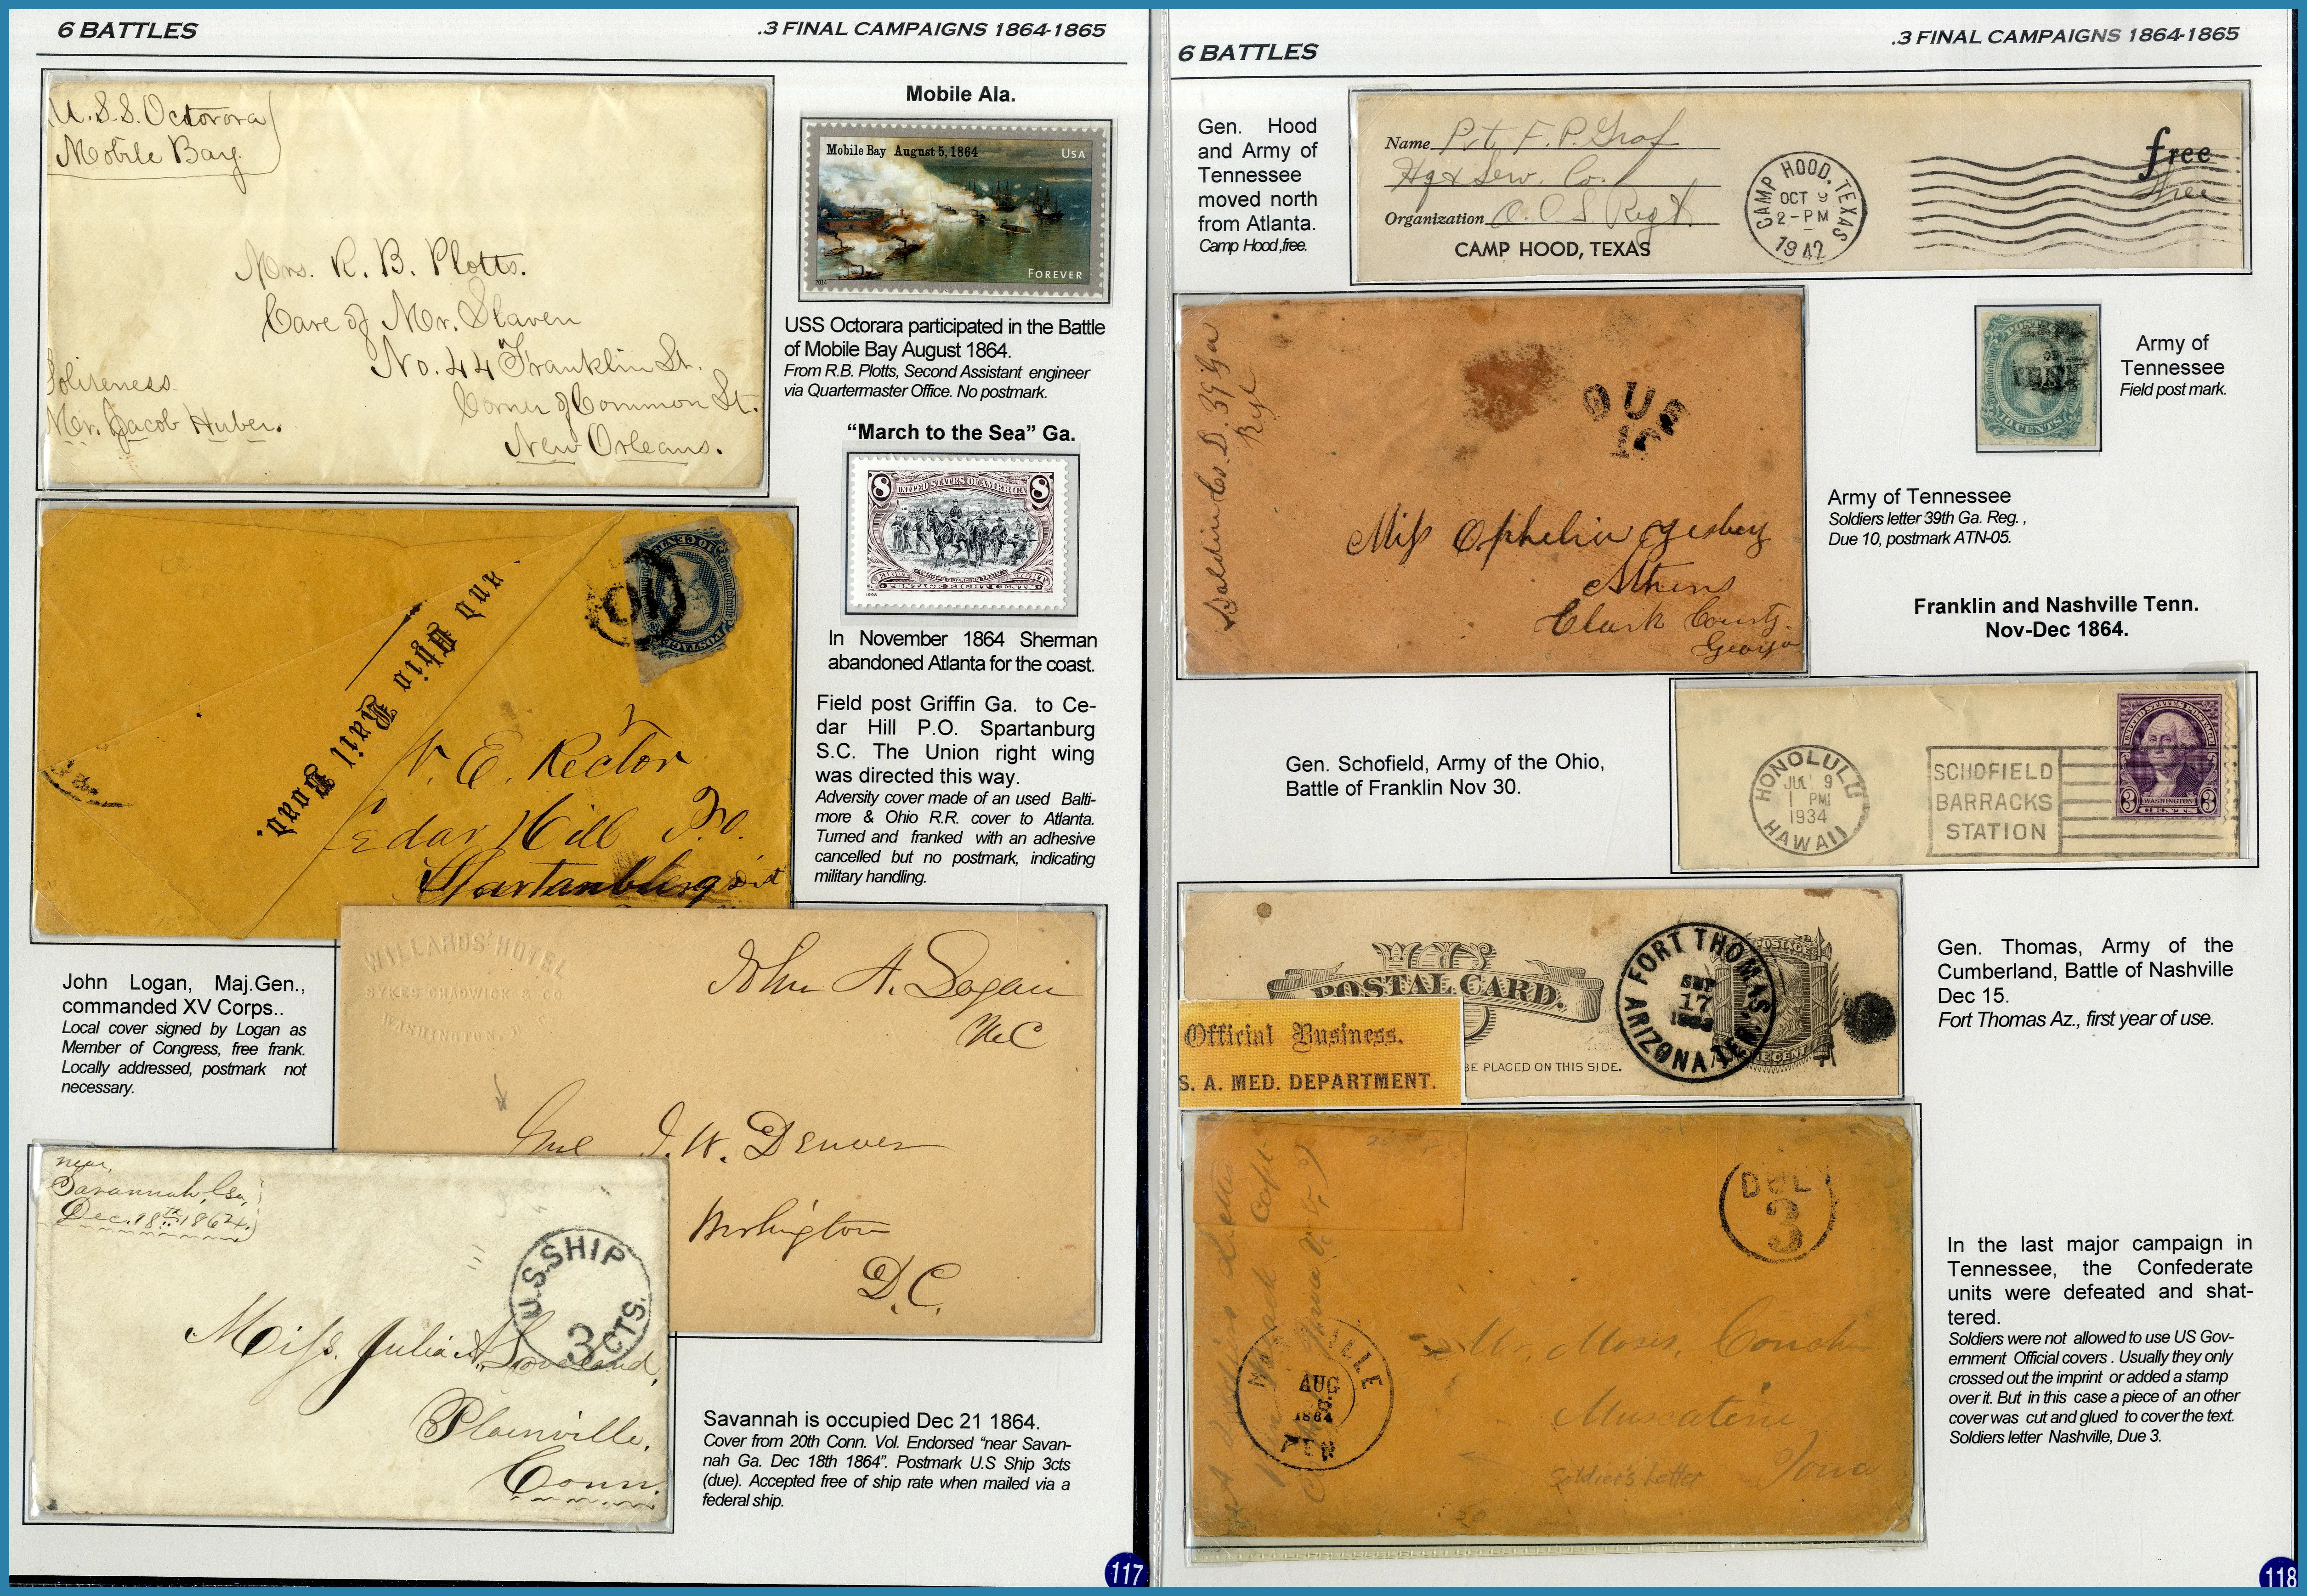 6 BATTLES
.3 FINAL CAMPAIGNS 1864-1865
U.S.S. Octorora
Mobile Bay.
Mrs. R. B. Plotts.
Care of Mr. Slaven
No. 44 Franklin St.
Corner of Common St.
New Orleans.
Politeness
Mr. Jacob Huber.
Mobile Ala.
Mobile Bay August 5, 1864
USA
FOREVER
2014
USS Octorara participated in the Battle
of Mobile Bay August 1864.
From R.B. Plotts, Second Assistant engineer
via Quartermaster Office. No postmark.
"March to the Sea" Ga.
8 UNITED STATES OF AMERICA 8
EIGHT EIGHT
POSTAGE EIGHT CENTS
1998
In November 1864 Sherman
abandoned Atlanta for the coast.
and Ohio Rail Road.
10
V. E. Rector
Cedar Hill P.O.
Spartanburg Dist
Field post Griffin Ga. to Ce-
dar Hill P.O. Spartanburg
S.C. The Union right wing
was directed this way.
Adversity cover made of an used Balti-
more & Ohio R.R. cover to Atlanta.
Turned and franked with an adhesive
cancelled but no postmark, indicating
military handling.
WILLARDS' HOTEL
SYKES CHADWICK & CO
WASHINGTON, D.C.
John A. Logan
MC
Gnl J. W. Denver
Washington
D.C.
John Logan, Maj.Gen.,
commanded XV Corps..
Local cover signed by Logan as
Member of Congress, free frank.
Locally addressed, postmark not
necessary.
near,
Savannah, Ga,
Dec. 18th 1864.
U.S. SHIP
3 CTS.
Miss. Julia A. Loveland,
Plainville,
Conn.
Savannah is occupied Dec 21 1864.
Cover from 20th Conn. Vol. Endorsed "near Savan-
nah Ga. Dec 18th 1864". Postmark U.S Ship 3cts
(due). Accepted free of ship rate when mailed via a
federal ship.
117
6 BATTLES
.3 FINAL CAMPAIGNS 1864-1865
Gen. Hood
and Army of
Tennessee
moved north
from Atlanta.
Camp Hood,free.
Name Pvt. F. P. Graf
Hq & Serv. Co.
Organization O. C. S Regt.
CAMP HOOD, TEXAS
CAMP HOOD, TEXAS
OCT 9
2-PM
1942
free
Free
Co. D. 39 Ga
DUE
10
Miss Ophelia Yerbey
Athens
Clark County.
Georgia
POSTAGE
TEN
10 CENTS
Army of
Tennessee
Field post mark.
Army of Tennessee
Soldiers letter 39th Ga. Reg. ,
Due 10, postmark ATN-05.
Franklin and Nashville Tenn.
Nov-Dec 1864.
Gen. Schofield, Army of the Ohio,
Battle of Franklin Nov 30.
HONOLULU
JUL 9
1 PM
1934
HAWAII
SCHOFIELD
BARRACKS
STATION
UNITED STATES POSTAGE
3 WASHINGTON 3
CENTS
POSTAL CARD.
FORT THOMAS
17
ARIZONA TER.
POSTAGE
ONE CENT
Official Business.
S. A. MED. DEPARTMENT.
BE PLACED ON THIS SIDE.
Gen. Thomas, Army of the
Cumberland, Battle of Nashville
Dec 15.
Fort Thomas Az., first year of use.
DUE
3
AUG
1864
Mr. Moses. Conahn
Muscatine
Iowa
Soldier's Letter
In the last major campaign in
Tennessee, the Confederate
units were defeated and shat-
tered.
Soldiers were not allowed to use US Gov-
ernment Official covers . Usually they only
crossed out the imprint or added a stamp
over it. But in this case a piece of an other
cover was cut and glued to cover the text.
Soldiers letter Nashville, Due 3.
118